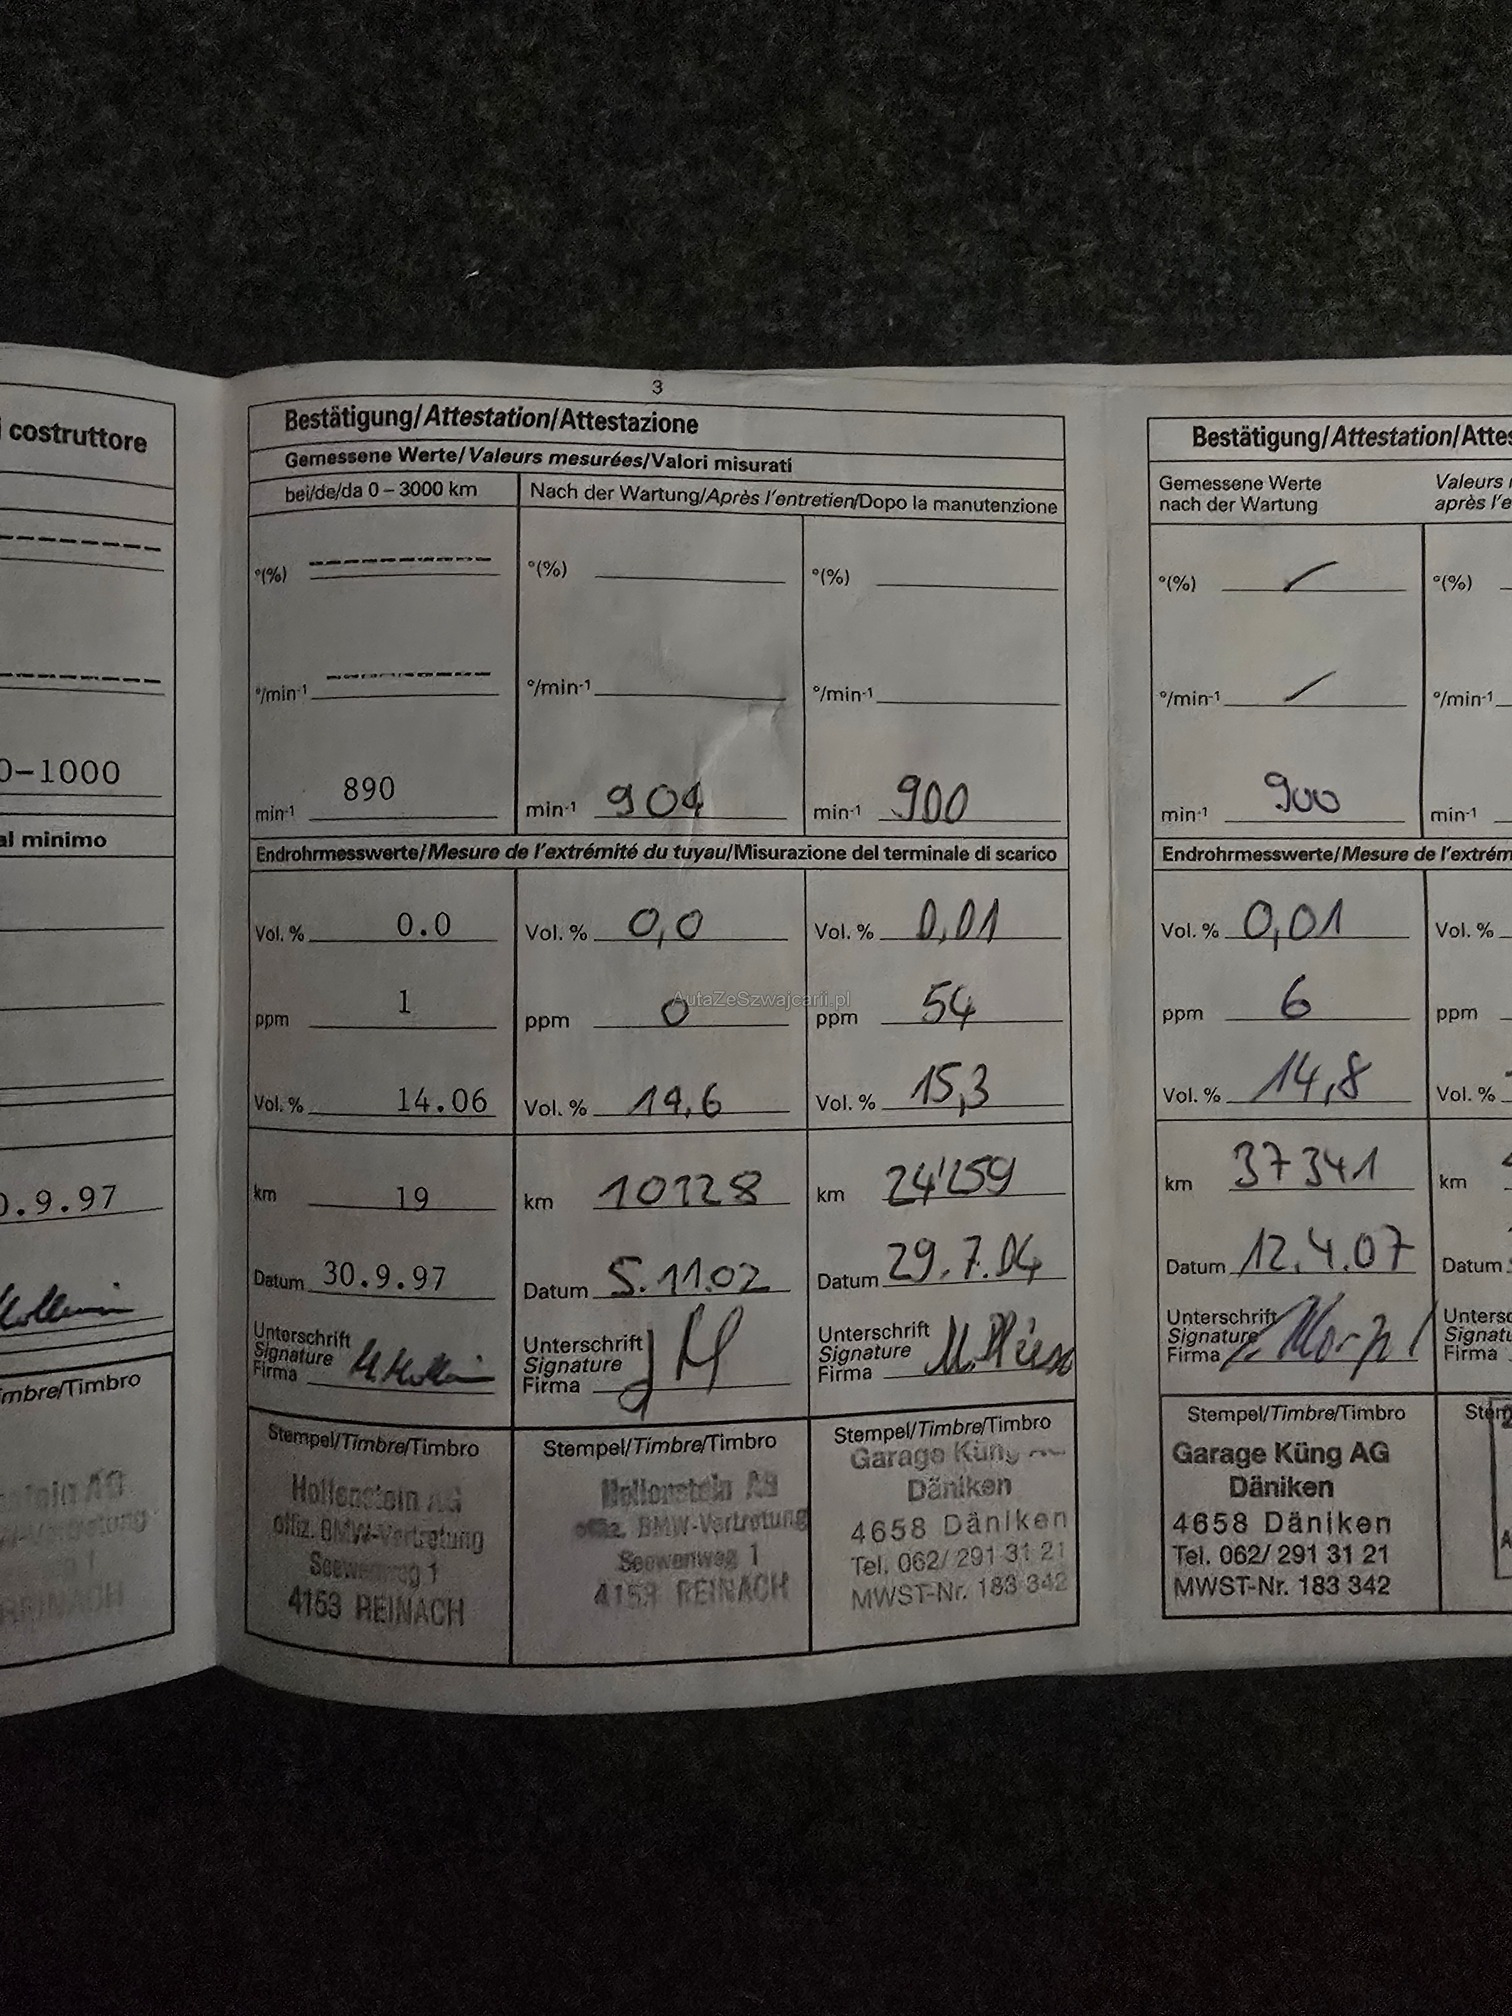 costruttore
0-1000
al minimo
0.9.97
Timbre/Timbro
3
Bestätigung/Attestation/Attestazione
Gemessene Werte/Valeurs mesurées/Valori misurati
bei/de/da 0 – 3000 km
Nach der Wartung/Après l'entretien/Dopo la manutenzione
°(%) °(%) °(%)
°/min-1 °/min-1 °/min-1
min-1 890 min-1 904 min-1 900
Endrohrmesswerte/Mesure de l'extrémité du tuyau/Misurazione del terminale di scarico
Vol. % 0.0 Vol. % 0,0 Vol. % 0,01
ppm 1 ppm 0 ppm 54
AutaZeSzwajcarii.pl
Vol. % 14.06 Vol. % 14,6 Vol. % 15,3
km 19 km 10728 km 24'259
Datum 30.9.97 Datum 5.11.02 Datum 29.7.04
Unterschrift Unterschrift Unterschrift
Signature Signature Signature
Firma Firma Firma
Stempel/Timbre/Timbro Stempel/Timbre/Timbro Stempel/Timbre/Timbro
Hollenstein AG Hollenstein AG Garage Küng AG
offiz. BMW-Vertretung offiz. BMW-Vertretung Däniken
Seewenweg 1 Seewenweg 1 4658 Däniken
4153 REINACH 4153 REINACH Tel. 062/ 291 31 21
MWST-Nr. 183 342
Bestätigung/Attestation/
Gemessene Werte Valeurs
nach der Wartung après
°(%) °(%)
°/min-1 °/min-1
min-1 900 min-1
Endrohrmesswerte/Mesure de
Vol. % 0,01 Vol. %
ppm 6 ppm
Vol. % 14,8 Vol. %
km 37341 km
Datum 12.4.07 Datum
Unterschrift
Signature
Firma Firma
Stempel/Timbre/Timbro
Garage Küng AG
Däniken
4658 Däniken
Tel. 062/ 291 31 21
MWST-Nr. 183 342